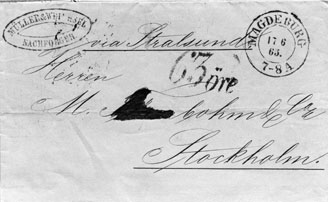 MÜLLER & WEICHSEL
NACHFOLGER
MAGDEBURG
17 6
63.
7-8 A
via Stralsund
Herren
63 öre
M. bohm & Co
Stockholm.